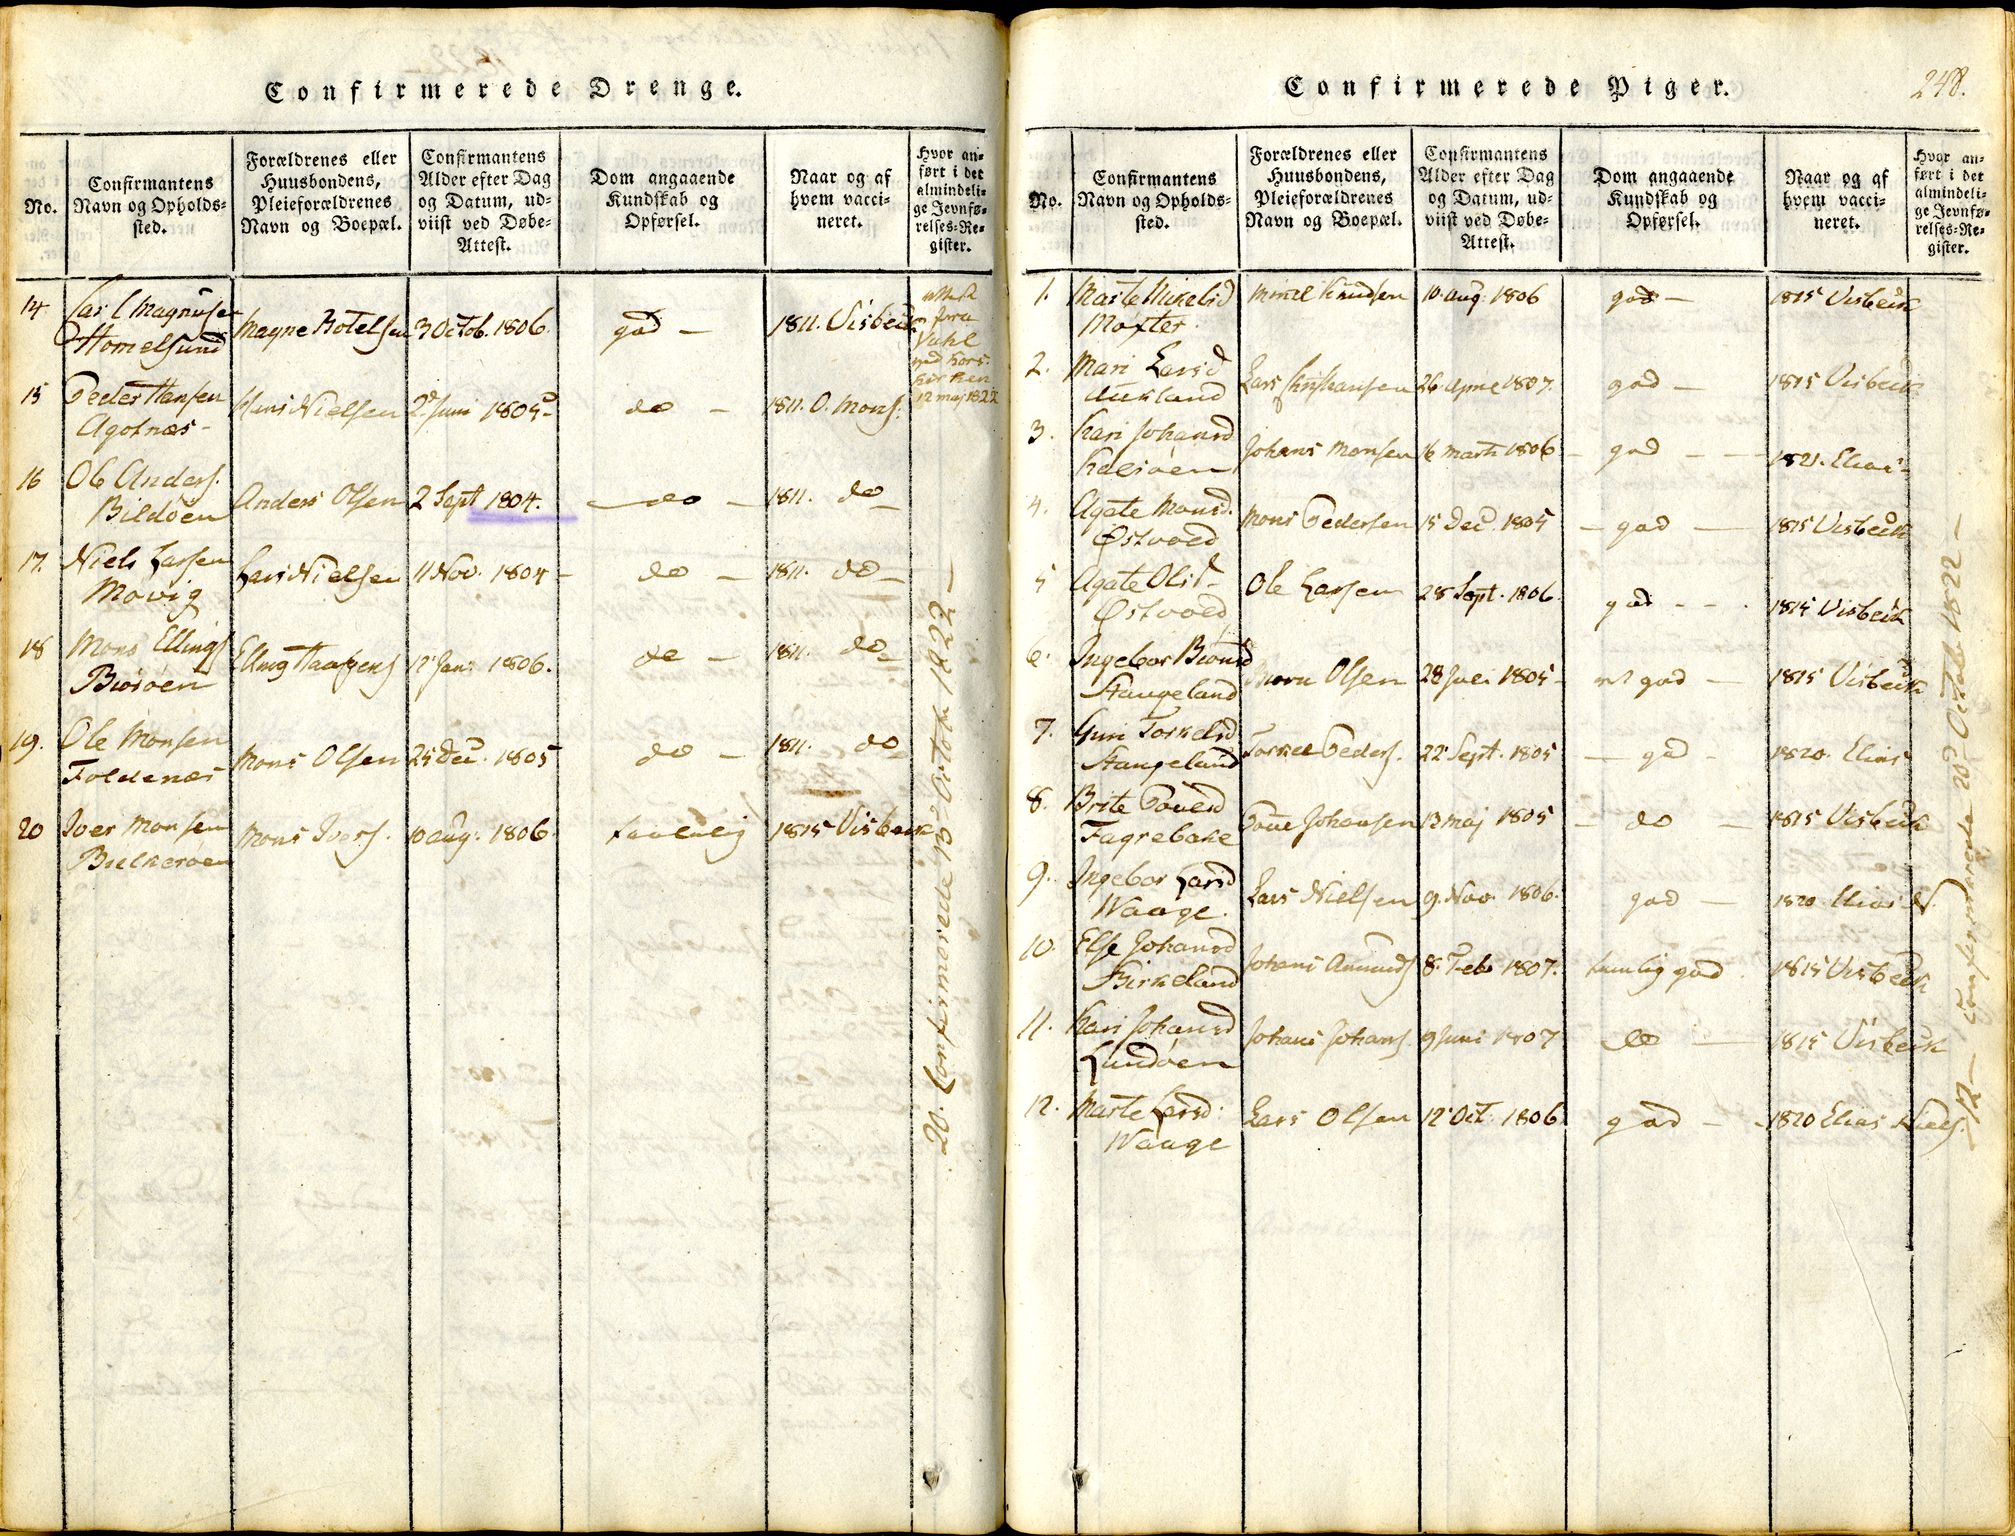 Confirmerede Drenge.
No.
Confirmantens
Navn og Opholds-
sted.
Forældrenes eller
Huusbondens,
Pleieforældrenes
Navn og Boepæl.
Confirmantens
Alder efter Dag
og Datum, ud-
viist ved Døbe-
Attest.
Dom angaaende
Kundskab og
Opførsel.
Naar og af
hvem vacci-
neret.
Hvor an-
ført i det
almindeli-
ge Jevnfø-
relses-Re-
gister.
14 Carl Magnusen Magne Botelsen 3 Octob. 1806. god - 1811. Visbech
Homelsund
fra
med Kors-
kirken
12 maj 1822
15 Peder Hansen Hans Nielsen 2d Juni 1805 - do - 1811. O. Mons.
Agotnæs -
16 Ole Anders. Anders Olsen 2 Sept 1804. - do - 1811. do -
Bildöen
17. Niels Larsen Lars Nielsen 11 Nov. 1804 - do - 1811. do -
Movig
18 Mons Ellings 12 Jan: 1806. do - 1811. do -
Biöröen
19. Ole Monsen Mons Olsen 25 Dec. 1805 do - 1811. do
Foldenæs
20 Iver Monsen Mons Ivers. 10 aug: 1806. taalelig 1815 Visbech
Bielkeröen
20. Confirmerede 13de Octobr 1822 -
Confirmerede Piger.
248.
No.
Confirmantens
Navn og Opholds-
sted.
Forældrenes eller
Huusbondens,
Pleieforældrenes
Navn og Boepæl.
Confirmantens
Alder efter Dag
og Datum, ud-
viist ved Døbe-
Attest.
Dom angaaende
Kundskab og
Opførsel.
Naar og af
hvem vacci-
neret.
Hvor an-
ført i det
almindeli-
ge Jevnfø-
relses-Re-
gister.
1. Marte Mikelsd Mikel Knudsen 10. aug: 1806 god - 1815 Visbech
Moxter.
2. Mari Larsd Lars Christiansen 26 April 1807. god - 1815 Visbech
Aukland
3. Kari Johansd Johans Monsen 16 Marti 1806 - god - - 1821. Elias -
Kalsöen
4. Agate Monsd. Mons Pedersen 15 Dec. 1805 - god - 1815 Visbech
Östvoed
5 Agate Olsd - Ole Larsen 28 Sept. 1806. god - - . 1815 Visbech
Östvoed
6. Ingebor Biörnsd Biörn Olsen 28 Juli 1805 - god - 1815 Visbech
Stangeland
7. Guri Torkelsd Torkel Peders. 22 Sept. 1805 - gd - 1820. Elias
Stangeland
8. Brite Povelsd Povel Johansen 12 maj 1805 - do - 1815 Visbech
Fagrebake
9. Ingebor Larsd Lars Nielsen 9. Nov. 1806. god - 1820 Elias N.
Waage.
10. Else Johansd Johans Amunds 8. Feb 1807. temlig god. 1815 Visbech
Birkeland
11. Kari Johansd Johans Johans. 9 Juni 1807 do - 1815 Visbech
Lundöen
12. Marte Larsd. Lars Olsen 12 Oct. 1806. god - - 1820 Elias Niels.
Waage
12 - Confirmerede 20de Octob 1822 -